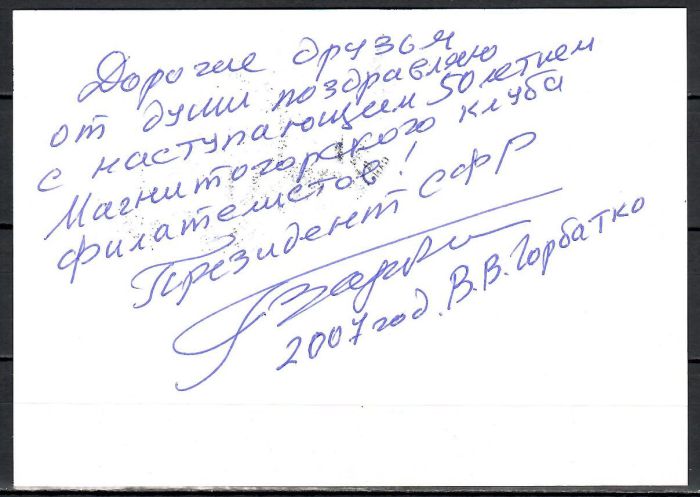 Дорогие друзья
от души поздравляю
с наступающим 50летием
Магнитогорского клуба
филателистов!
Президент СФР
2007 год. В.В. Горбатко